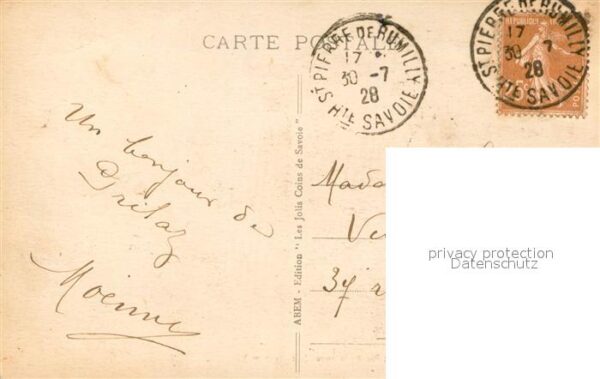 CARTE POSTALE
ST PIERRE DE RUMILLY
17
30 -7
28
HTE SAVOIE
ST PIERRE DE RUMILLY
17
30 7
28
HTE SAVOIE
Un bonjour de
ABEM - Edition "Les Jolis Coins de Savoie"
Mada
Ve
37
privacy protection
Datenschutz